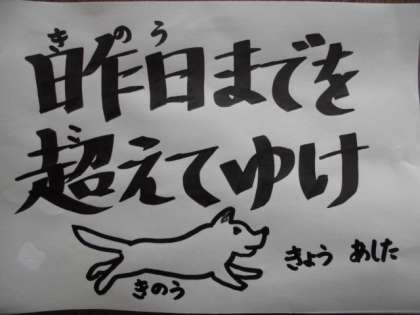 きのう
昨日までを
こ
超えてゆけ
きのう きょう あした